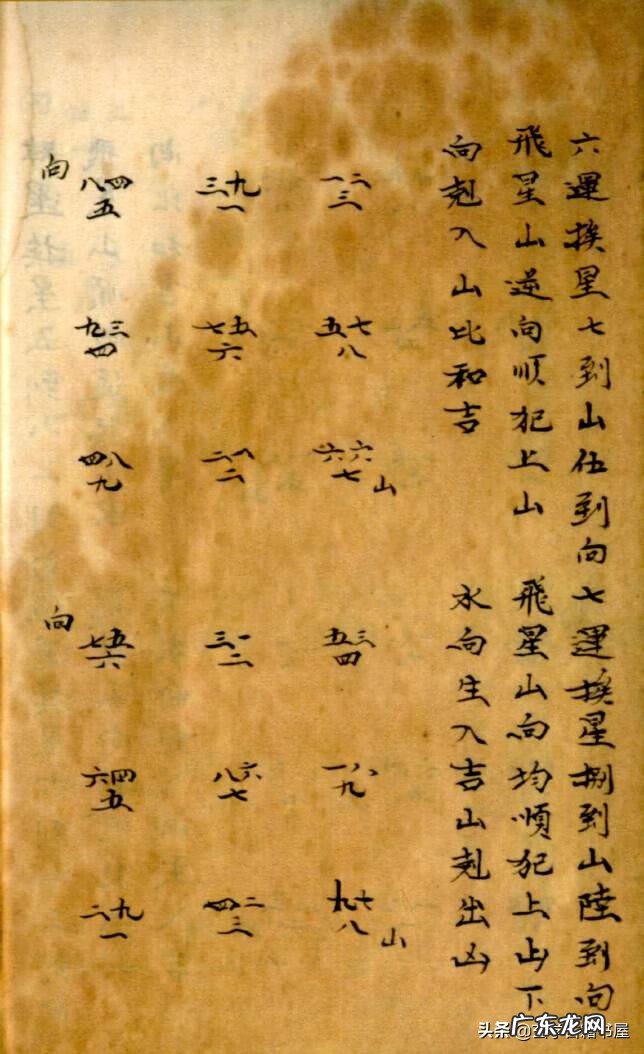 六運挨星七到山伍到向
飛星山逆向順犯上山
向剋入山比和吉
一二三
五七八
六六七 山
三九一
七五六
二一二
向 八四五
九三四
四八九
七運挨星捌到山陸到向
飛星山向均順犯上山下
水向生入吉山剋出凶
五三四
一八九
九七八 山
三一二
八六七
四二三
向 七五六
六四五
二九一
头条
书屋
广东龙网